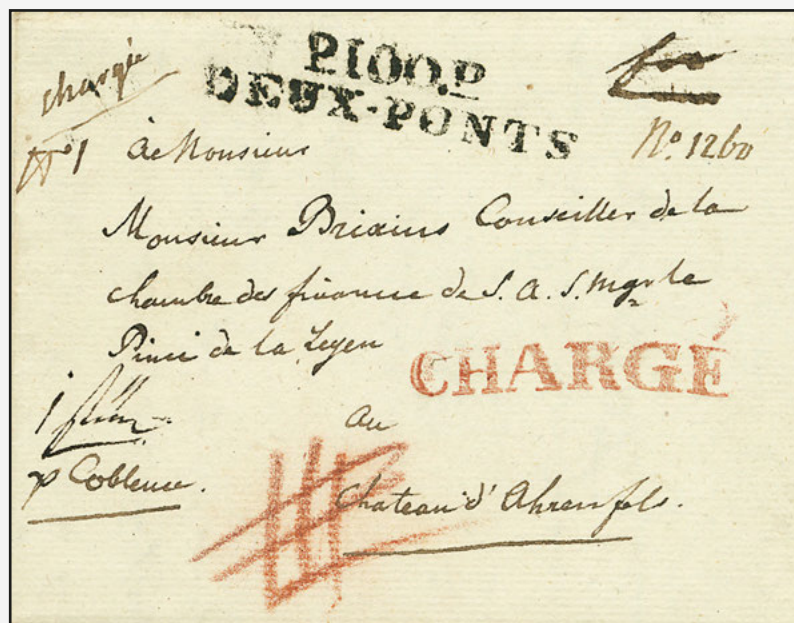 chargée
P.100.P
DEUX-PONTS
N° 1 à Monsieur
N° 1260
Monsieur Brixius Conseiller de la
chambre des finance de S. A. S. Mgr le
Prince de la Leyen
CHARGÉ
au
p Coblence.
Chateau d'Ahrenfels.